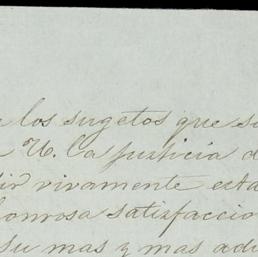 los sugetos que
U. la justicia d
vivamente esta
honrosa satisfaccio
su mas y mas